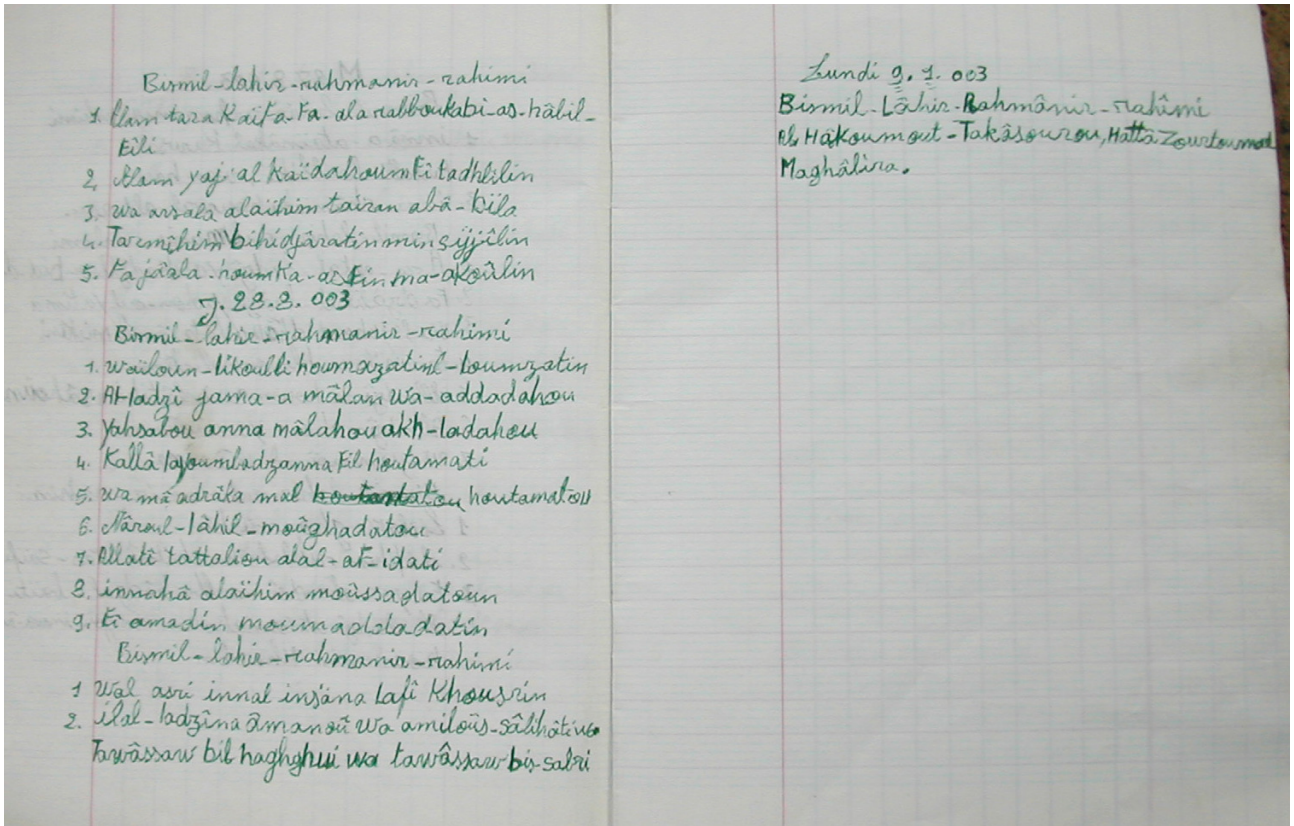 Bismil-lahir-rahmanir-rahimi
1. Alam tara Kaïfa-Fa-ala rabboukabi-as-hâbil-
Fîli
2. Alam yaj'al Kaïdahoum Fî tadhlîlin
3. Wa arsala alaïhim taïran abâ-bîla
4. Tarmîhim bihidjâratin min sijjîlin
5. Fajâala-houmka-asfin ma-akoûlin
J. 28.8.003
Bismil-lahir-rahmanir-rahimi
1. Waïloun-likoulli houmazatinl-loumzatin
2. Al-ladzî jama-a mâlan wa-addadahou
3. Yahsabou anna mâlahou akh-ladahou
4. Kallâ layoumbadzanna Fil houtamati
5. wa mâ adrâka mal houtamatou
6. Nâroul-lâhil-moûghadatou
7. Allatî tattaliou alal-af-idati
8. innahâ alaïhim moûssadatoun
9. Fî amadin moumaddadatin
Bismil-lahir-rahmanir-rahimi
1 Wal asri innal insâna Lafî Khousrin
2. ilal-ladzîna âmanoû wa amiloûs-sâlihâti wa
Tawâssaw bil haghghui wa tawâssaw bis-sabri
Lundi 9.1.003
Bismil-Lâhir-Rahmânir-rahîmi
Al Hâkoumout-Takâsourou, Hattâ Zourtoumoul
Maghâbira.